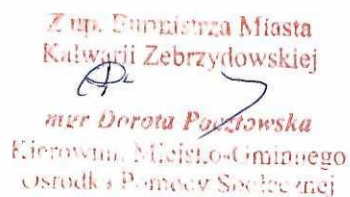 Z up. Burmistrza Miasta
Kalwarii Zebrzydowskiej
mgr Dorota Pocztowska
Kierownik Miejsko-Gminnego
Ośrodka Pomocy Społecznej